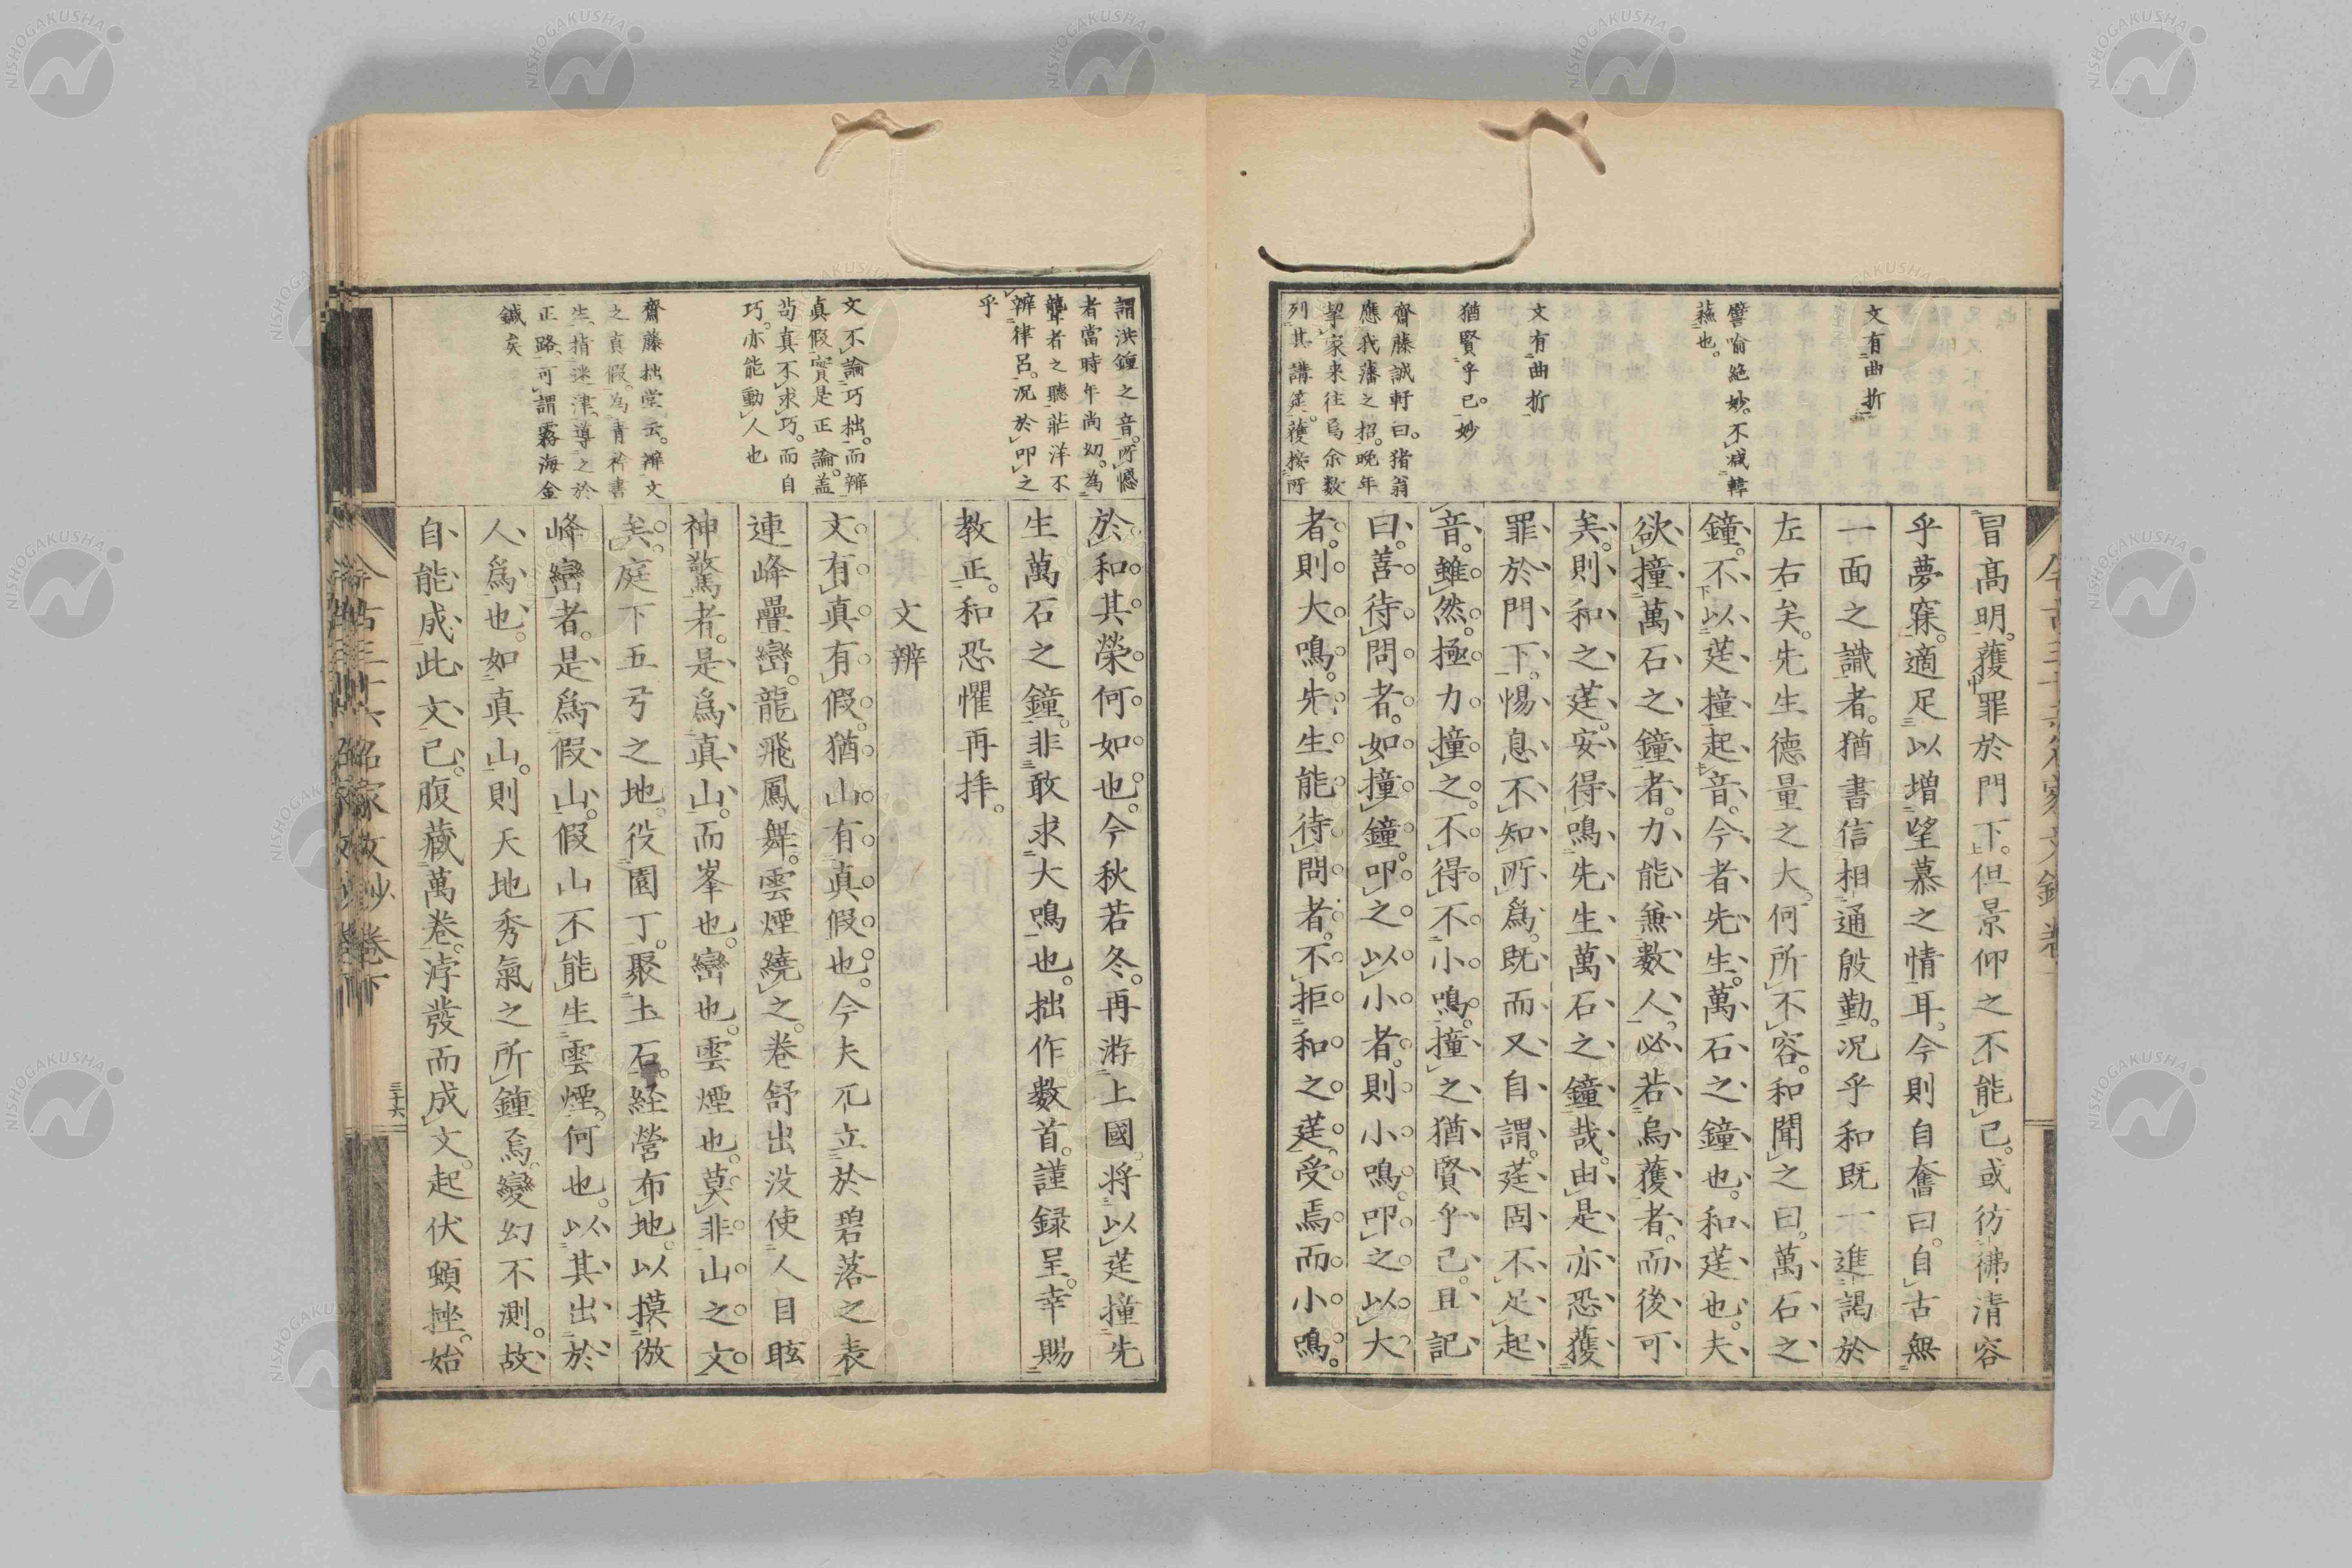 文有曲折
譬喻絕妙。不減韓
蘓也。
文有曲折
猶賢乎已。妙
齋藤誠軒曰。猪翁
應我藩之招。晚年
挈家来往焉余数
列其講筵。䕶按所
冒高明。䕶罪於門下。但景仰之不能已。或彷彿清容
乎夢寐。適足以增望慕之情耳。今則自奮曰。自古無
一面之識者。猶書信相通殷勤。況乎和既一進謁於
左右矣。先生德量之大。何所不容。和聞之曰。萬石之
鐘。不以莛撞起音。今者先生。萬石之鐘也。和莛也。夫
欲撞萬石之鐘者。力能兼數人。必若烏䕶者。而後可
矣。則和之莛。安得鳴先生萬石之鐘哉。由是亦恐䕶
罪於門下。惕息不知所爲。既而又自謂。莛固不足起
音。雖然。極力撞之。不得不小鳴。撞之猶賢乎已。且記
曰。善待問者。如撞鐘。叩之以小者。則小鳴。叩之以大
者。則大鳴。先生能待問者。不拒和之莛。受焉而小鳴。
謂洪鍾之音。所憾
者當時年尚幼。為
聾者之聽莊洋不
辨律呂。況於叩之
乎
文不論巧拙。而辨
真假實是正論。盖
苟真不求巧。而自
巧。亦能動人也
齋藤拙堂云。辨文
之真假。為青衿書
生指迷津。導之於
正路。可謂霧海金
鍼矣
於和其榮何如也。今秋若冬。再游上國。将以莛撞先
生萬石之鐘。非敢求大鳴也。拙作數首。謹録呈。幸賜
教正。和恐懼再拝。
文辨
文有真有假。猶山有真假也。今夫兀立於碧落之表
連峰疊巒。龍飛鳳舞。雲煙繞之。卷舒出没使人目眩
神驚者。是爲真山。而峯也。巒也。雲煙也。莫非山之文
矣。庭下五弓之地。役園丁。聚土石。経營布地。以摸倣
峰巒者。是爲假山。假山不能生雲煙。何也。以其出於
人爲也。如真山。則天地秀氣之所鍾焉。變幻不測。故
自能成此文已。腹藏萬卷。浡發而成文。起伏頓挫。始
三十六